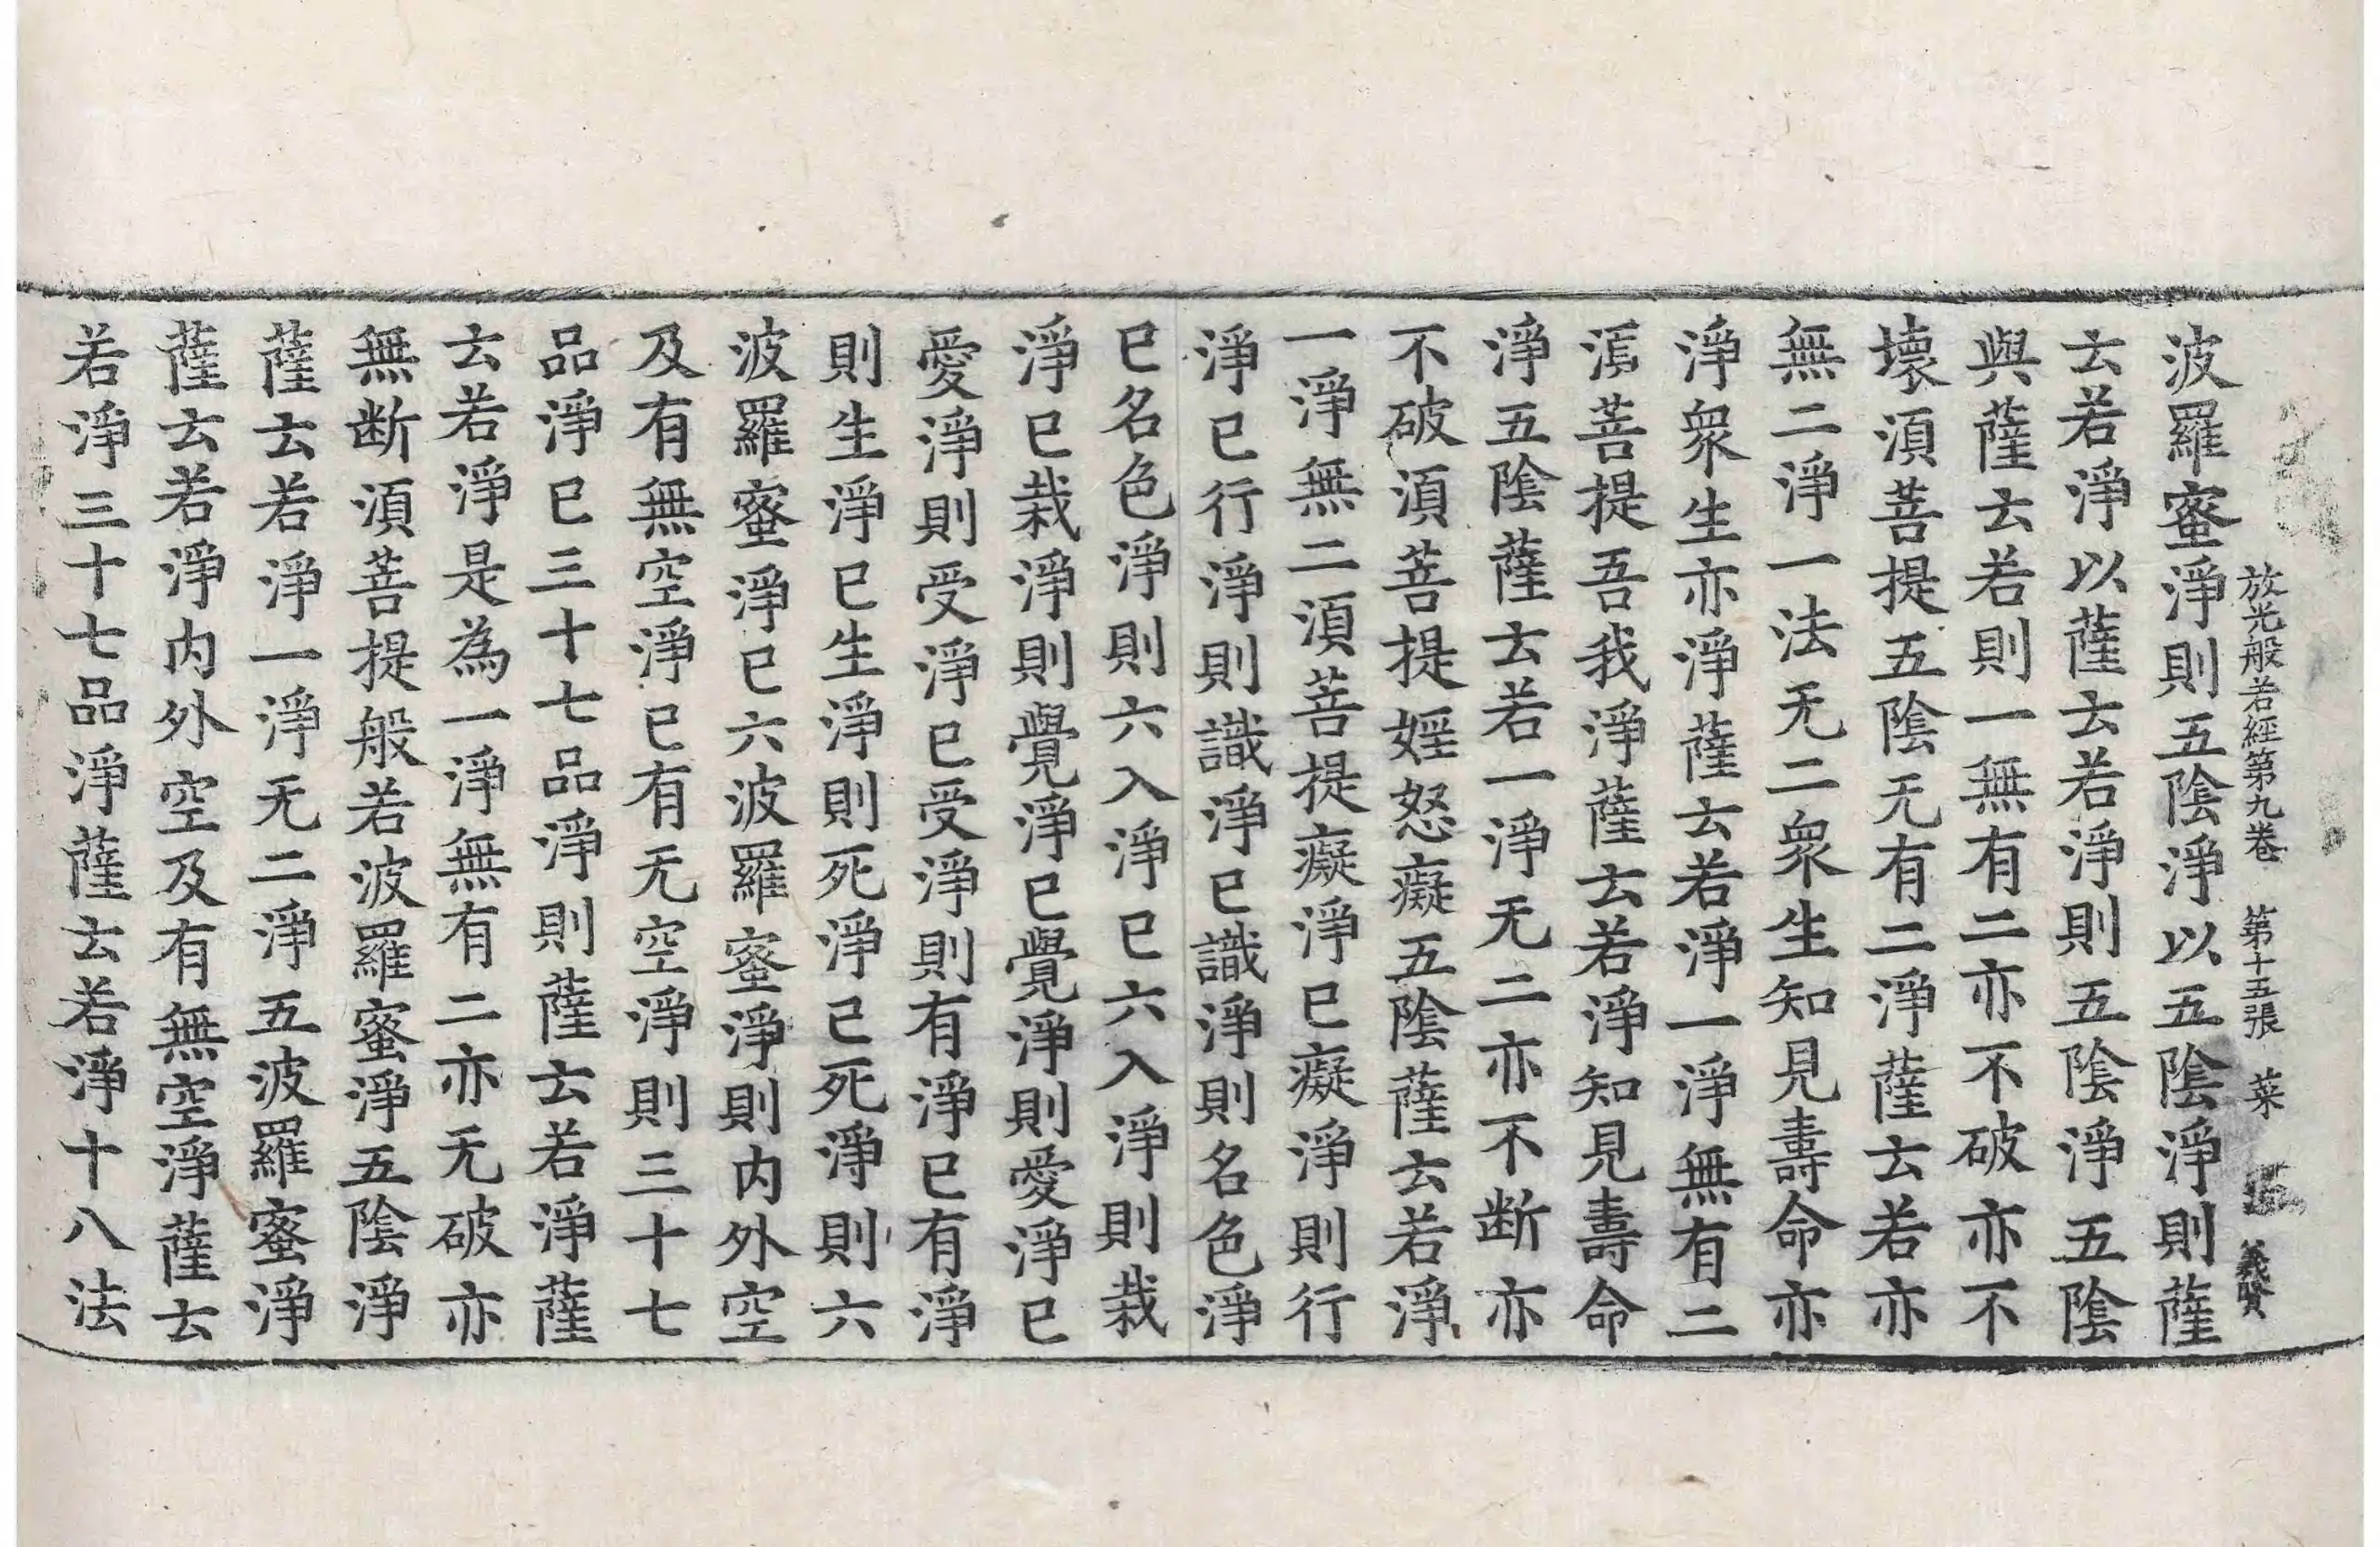 放光般若經第九卷　第十五張　菜　義賢
波羅蜜淨則五陰淨以五陰淨則薩
云若淨以薩云若淨則五陰淨五陰
與薩云若則一無有二亦不破亦不
壞湏菩提五陰无有二淨薩云若亦
無二淨一法无二衆生知見壽命亦
淨衆生亦淨薩云若淨一淨無有二
湏菩提吾我淨薩云若淨知見壽命
淨五陰薩云若一淨无二亦不断亦
不破湏菩提婬怒癡五陰薩云若淨
一淨無二湏菩提癡淨已癡淨則行
淨已行淨則識淨已識淨則名色淨
已名色淨則六入淨已六入淨則栽
淨已栽淨則覺淨已覺淨則愛淨已
愛淨則受淨已受淨則有淨已有淨
則生淨已生淨則死淨已死淨則六
波羅蜜淨已六波羅蜜淨則内外空
及有無空淨已有无空淨則三十七
品淨已三十七品淨則薩云若淨薩
云若淨是為一淨無有二亦无破亦
無断湏菩提般若波羅蜜淨五陰淨
薩云若淨一淨无二淨五波羅蜜淨
薩云若淨内外空及有無空淨薩云
若淨三十七品淨薩云若淨十八法